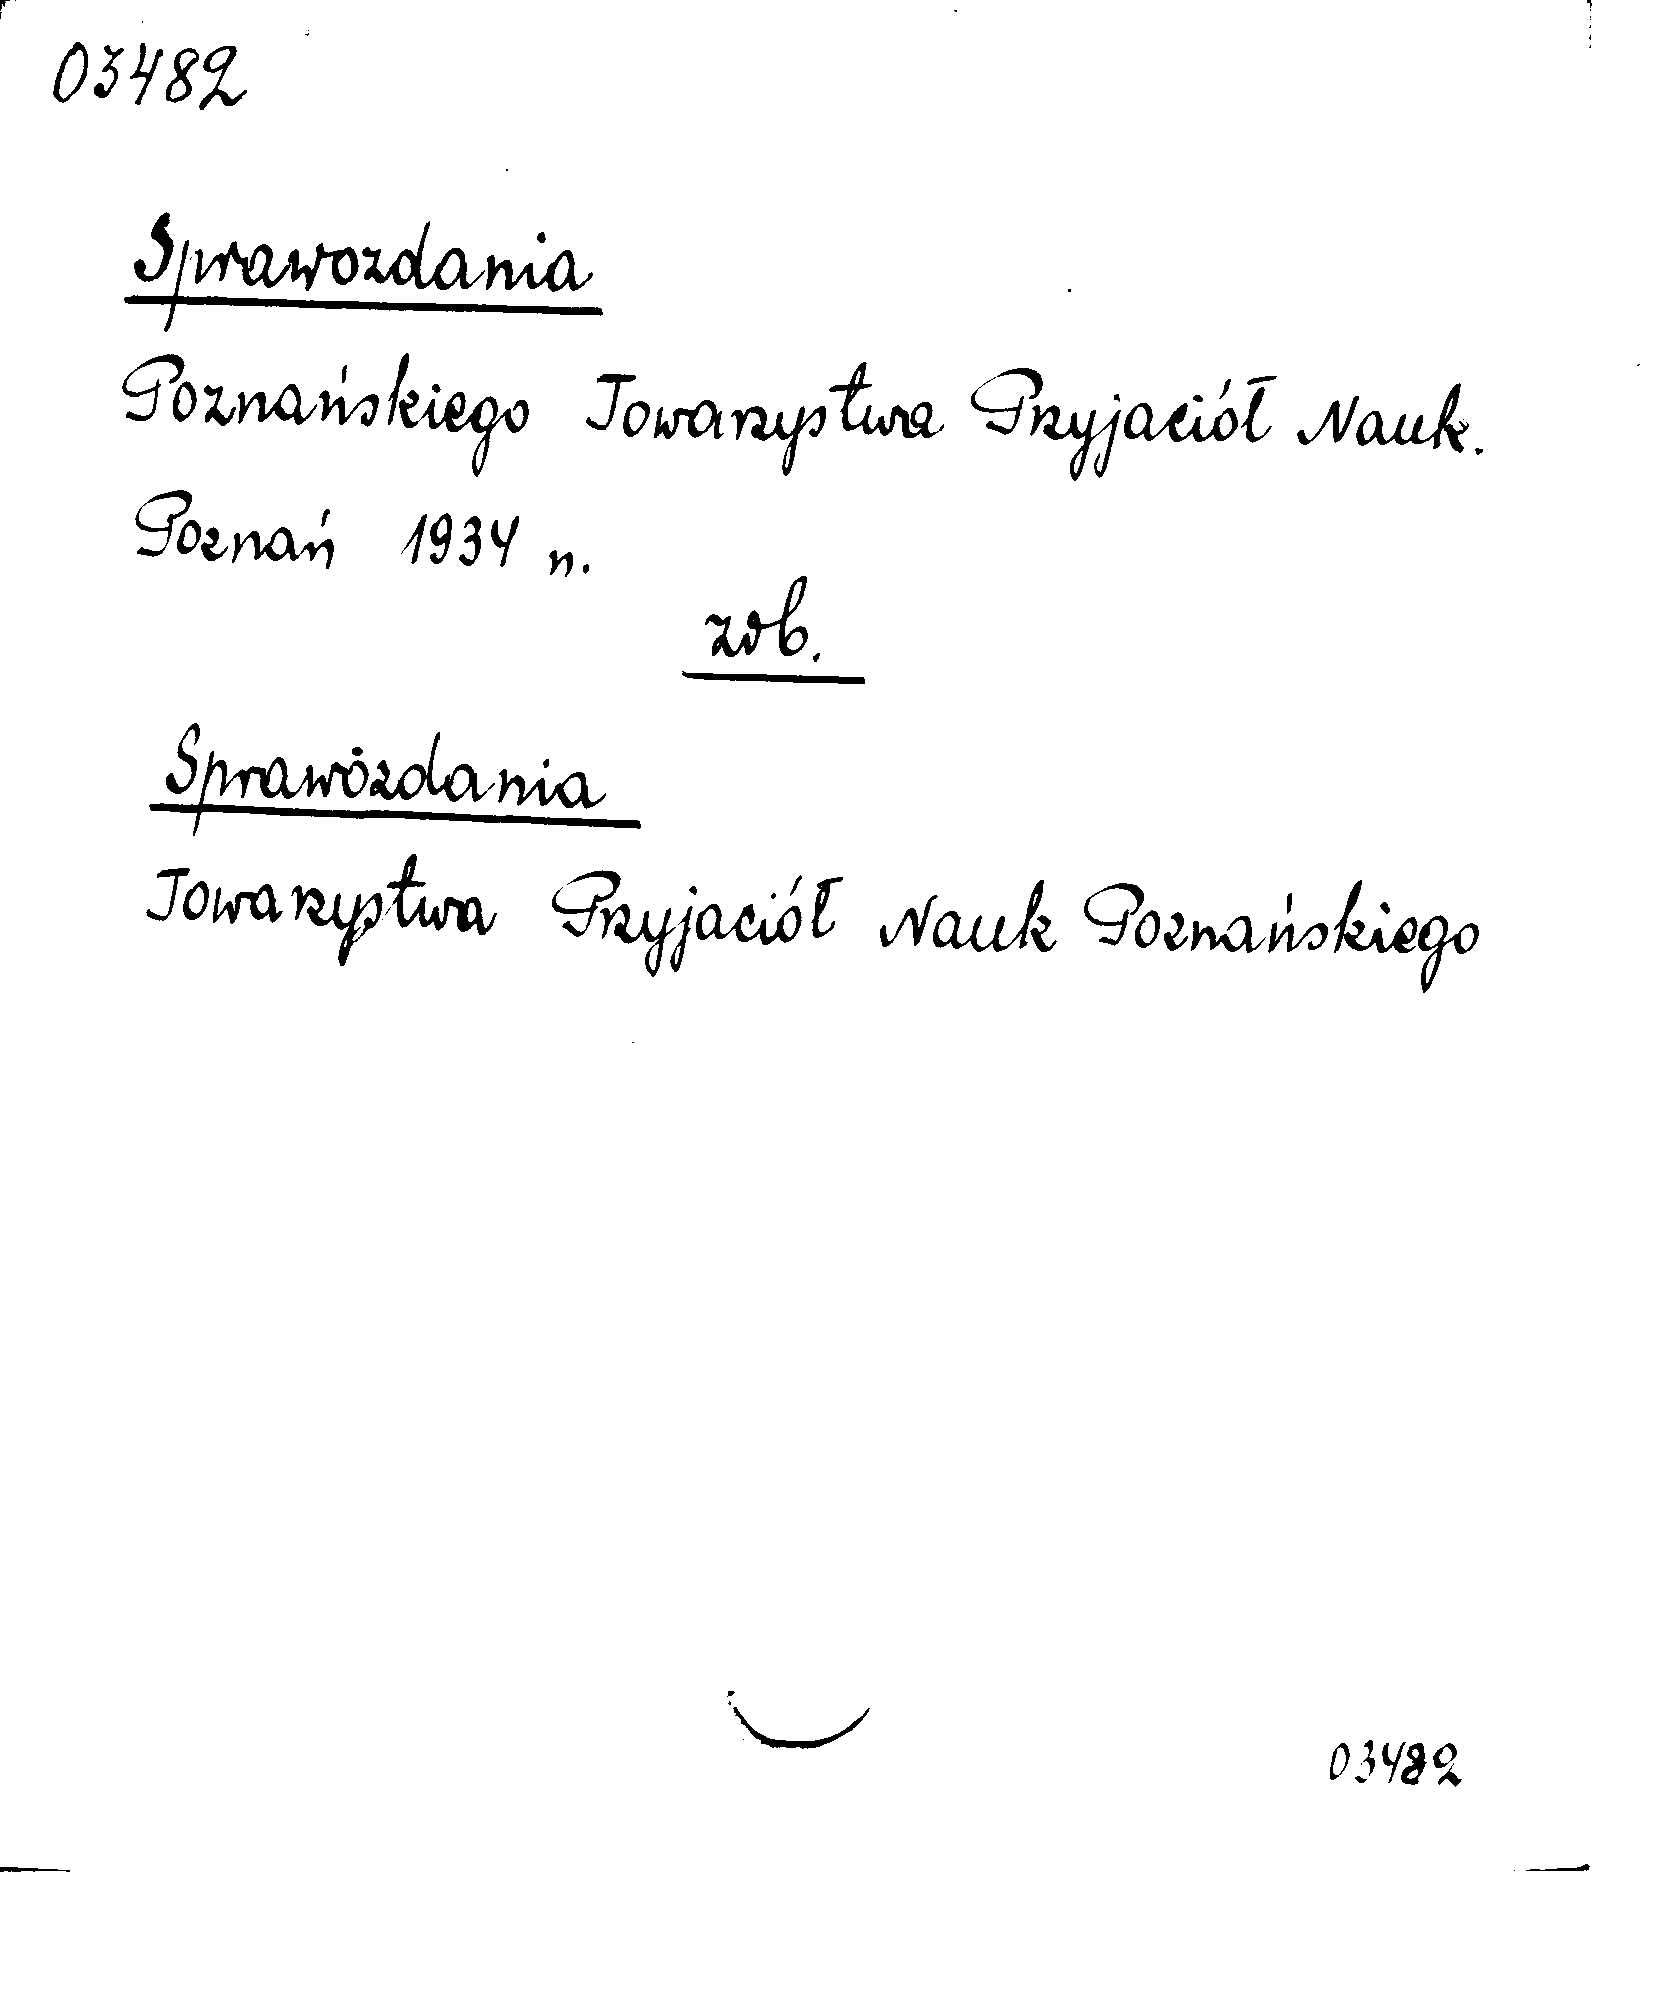 03482
Sprawozdania
Poznańskiego Towarzystwa Przyjaciół Nauk.
Poznań 1934 r.
zob.
Sprawozdania
Towarzystwa Przyjaciół Nauk Poznańskiego
03482